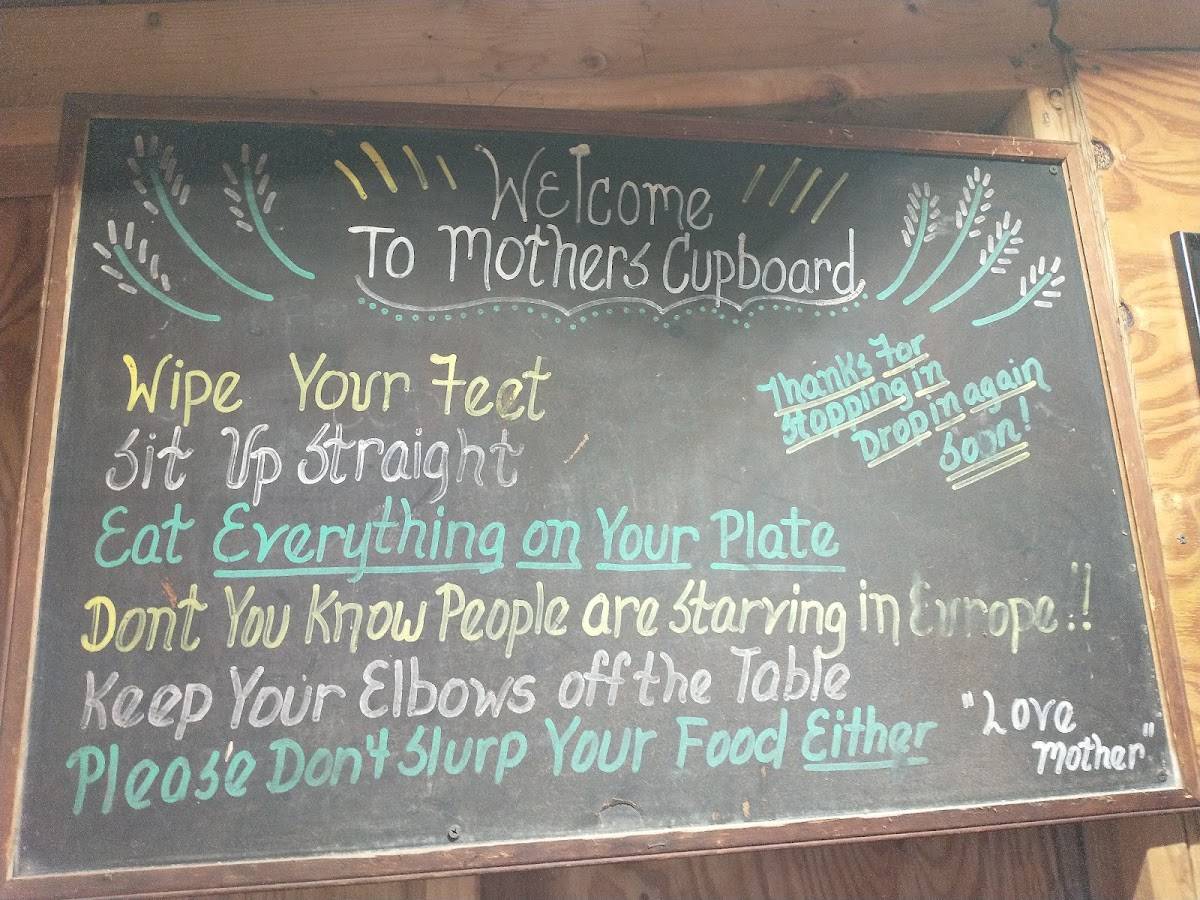 Welcome
To Mothers Cupboard
Wipe Your Feet
Sit Up Straight
Eat Everything on Your Plate
Don't You Know People are Starving in Europe!!
Keep Your Elbows off the Table
Please Don't Slurp Your Food Either
Thanks For
Stopping in
Drop in again
Soon!
"Love
Mother"